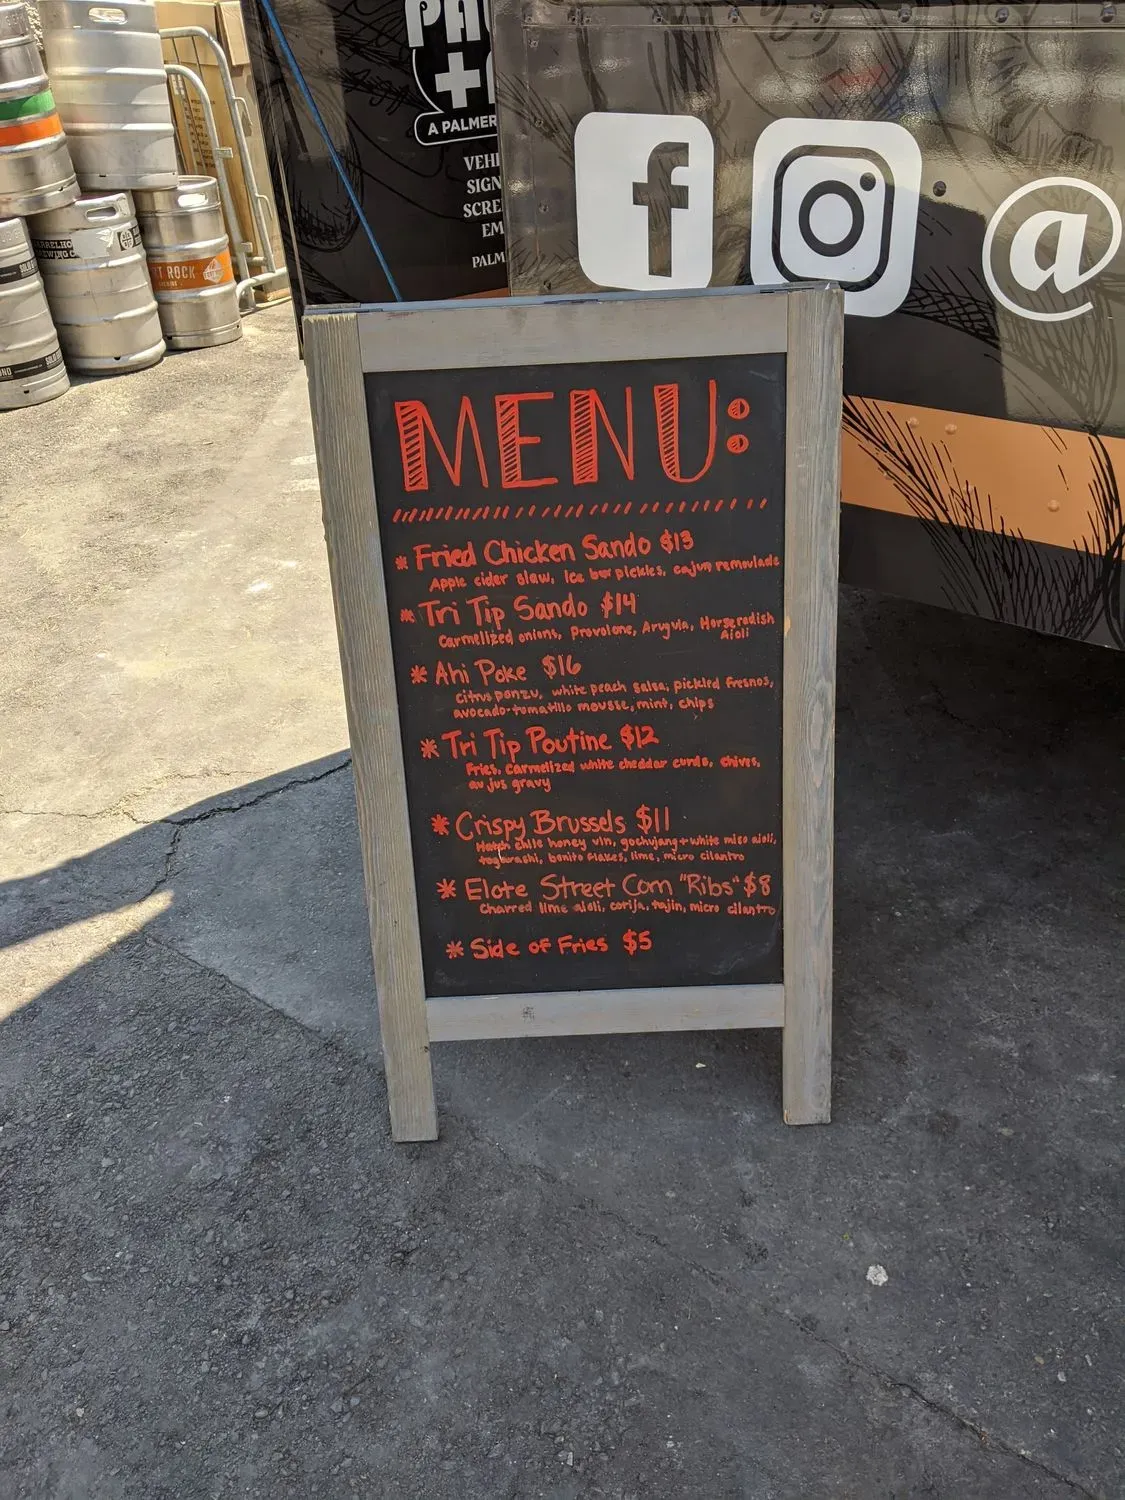 PA
+
A PALMER
VEHI
SIGN
SCRE
EM
PALM
f
@
ROCK
MENU:
* Fried Chicken Sando $13
Apple cider slaw, Ice box pickles, cajun remoulade
* Tri Tip Sando $14
Carmelized onions, Provolone, Arugula, Horseradish
Aioli
* Ahi Poke $16
citrus ponzu, white peach salsa, pickled fresnos,
avocado-tomatillo mousse, mint, chips
* Tri Tip Poutine $12
Fries, Carmelized white cheddar curds, chives,
au jus gravy
* Crispy Brussels $11
Hatch chile honey vin, gochujang + white miso aioli,
togarashi, bonito flakes, lime, micro cilantro
* Elote Street Corn "Ribs" $8
Charred lime aioli, cotija, tajin, micro cilantro
* Side of Fries $5